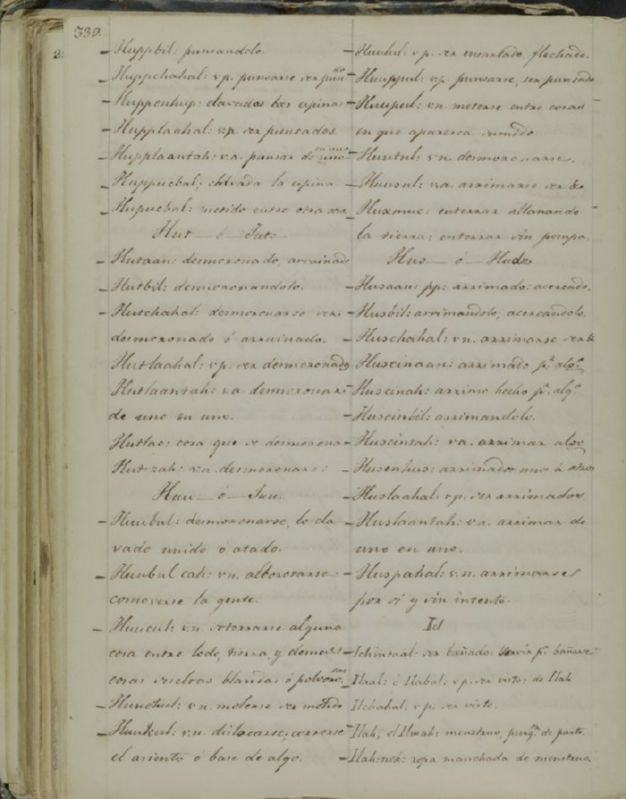 339.
Huppbil: punsandolo.
Huppchahal: v.p. punsarse ser pun
Huppenhup: clavados las espinas
Hupplaahal: v.p. ser puntados.
Hupplaantah: v.a. punsar de uno
Huppucbal: clavada la espina
Hupucbal: metido entre otra cosa
Hut ó Jut
Hutaan: desmoronado, arruinado
Hutbil: desmoronandolo.
Hutchahal: desmoronarse ser
desmoronado ó arruinado.
Hutlaahal: v.p. ser desmoronado
Hutlaantah: v.a. desmoronar
de uno en uno.
Hutlac: cosa que se desmorona
Hutzah: v.a. desmoronar:
Huu ó Juu
Huubul: desmoronarse, lo cla
vado unido ó atado.
Huubul cah: v.n. alborotarse
comoverse la gente.
Huucul: v.n. enterrarse alguna
cosa entre lodo, tierra, y demas
cosas blandas ó polvoro
Huuchul: v.n. meterse ser metido
Huukul: v.n. dislocarse, correrse
el asiento ó base de algo.
Huulul: v.p. ser ensartado, flechado.
Huuppul: v.p. punsarse, ser punsado
Huupul: v.n. meterse entre cosas
en que aparesca sumido
Huutul: v.n. desmoronarse.
Huusul: v.a. arrimarse ser &
Huxmuc: enterrar allanando
la tierra: enterrar sin pompa.
Hus ó Hudz
Husaan: pp: arrimado: acercado.
Husbil: arrimandolo, acercandolo.
Huschahal: v.n. arrimarse ser &
Huscinaan: arrimado pr. algo
Huscinah: arrimo hecho pr. algo
Huscinbil: arrimandolo.
Huscintah: v.a. arrimar algo
Husenhus: arrimados uno á otros
Huslaahal: v.p. ser arrimados
Huslaantah: v.a. arrimar de
uno en uno.
Huspahal: v.n. arrimarse
por si y sin intento.
Id
Ichintaal: ser bañado pr. bañarse
Ilaal: ó Ilabal: v.p. ser visto: de Ilah
Ilchahal. v.p. ser visto.
Ilah, el Ilmah: menstruo, purgn. de parto.
Ilah-nok: ropa manchada de menstruo.